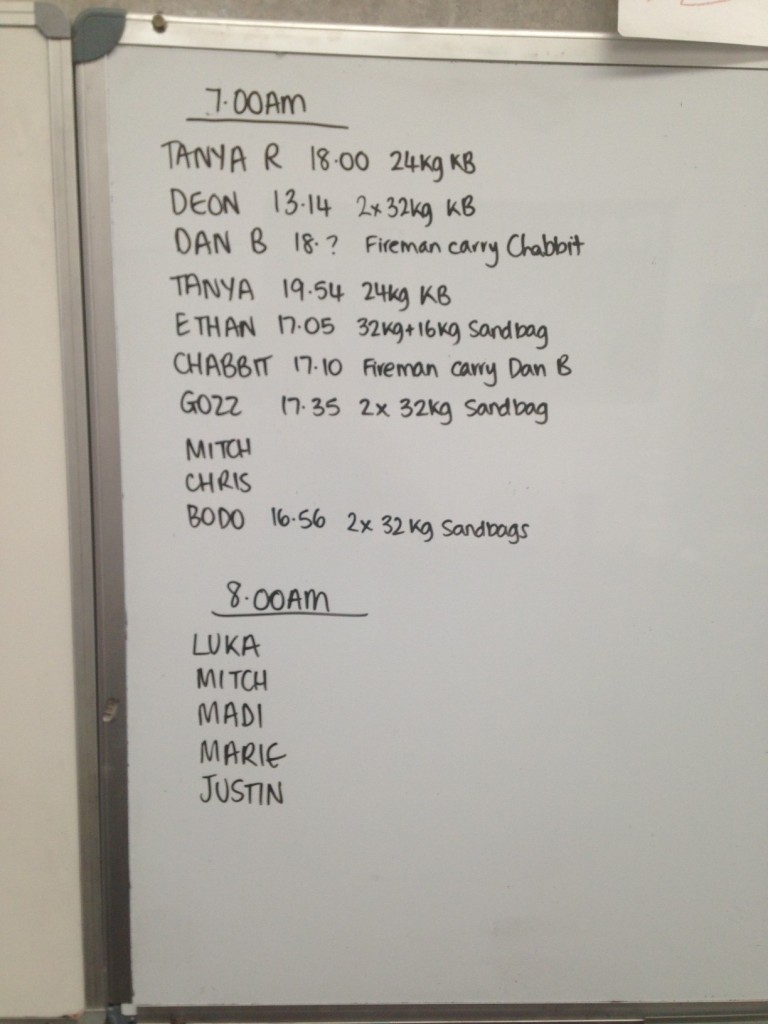 7.00AM
TANYA R 18.00 24kg KB
DEON 13.14 2x32kg KB
DAN B 18.? Fireman carry Chabbit
TANYA 19.54 24kg KB
ETHAN 17.05 32kg+16kg Sandbag
CHABBIT 17.10 Fireman carry Dan B
GOZZ 17.35 2x 32kg Sandbag
MITCH
CHRIS
BODO 16.56 2x 32kg Sandbags
8.00AM
LUKA
MITCH
MADI
MARIE
JUSTIN